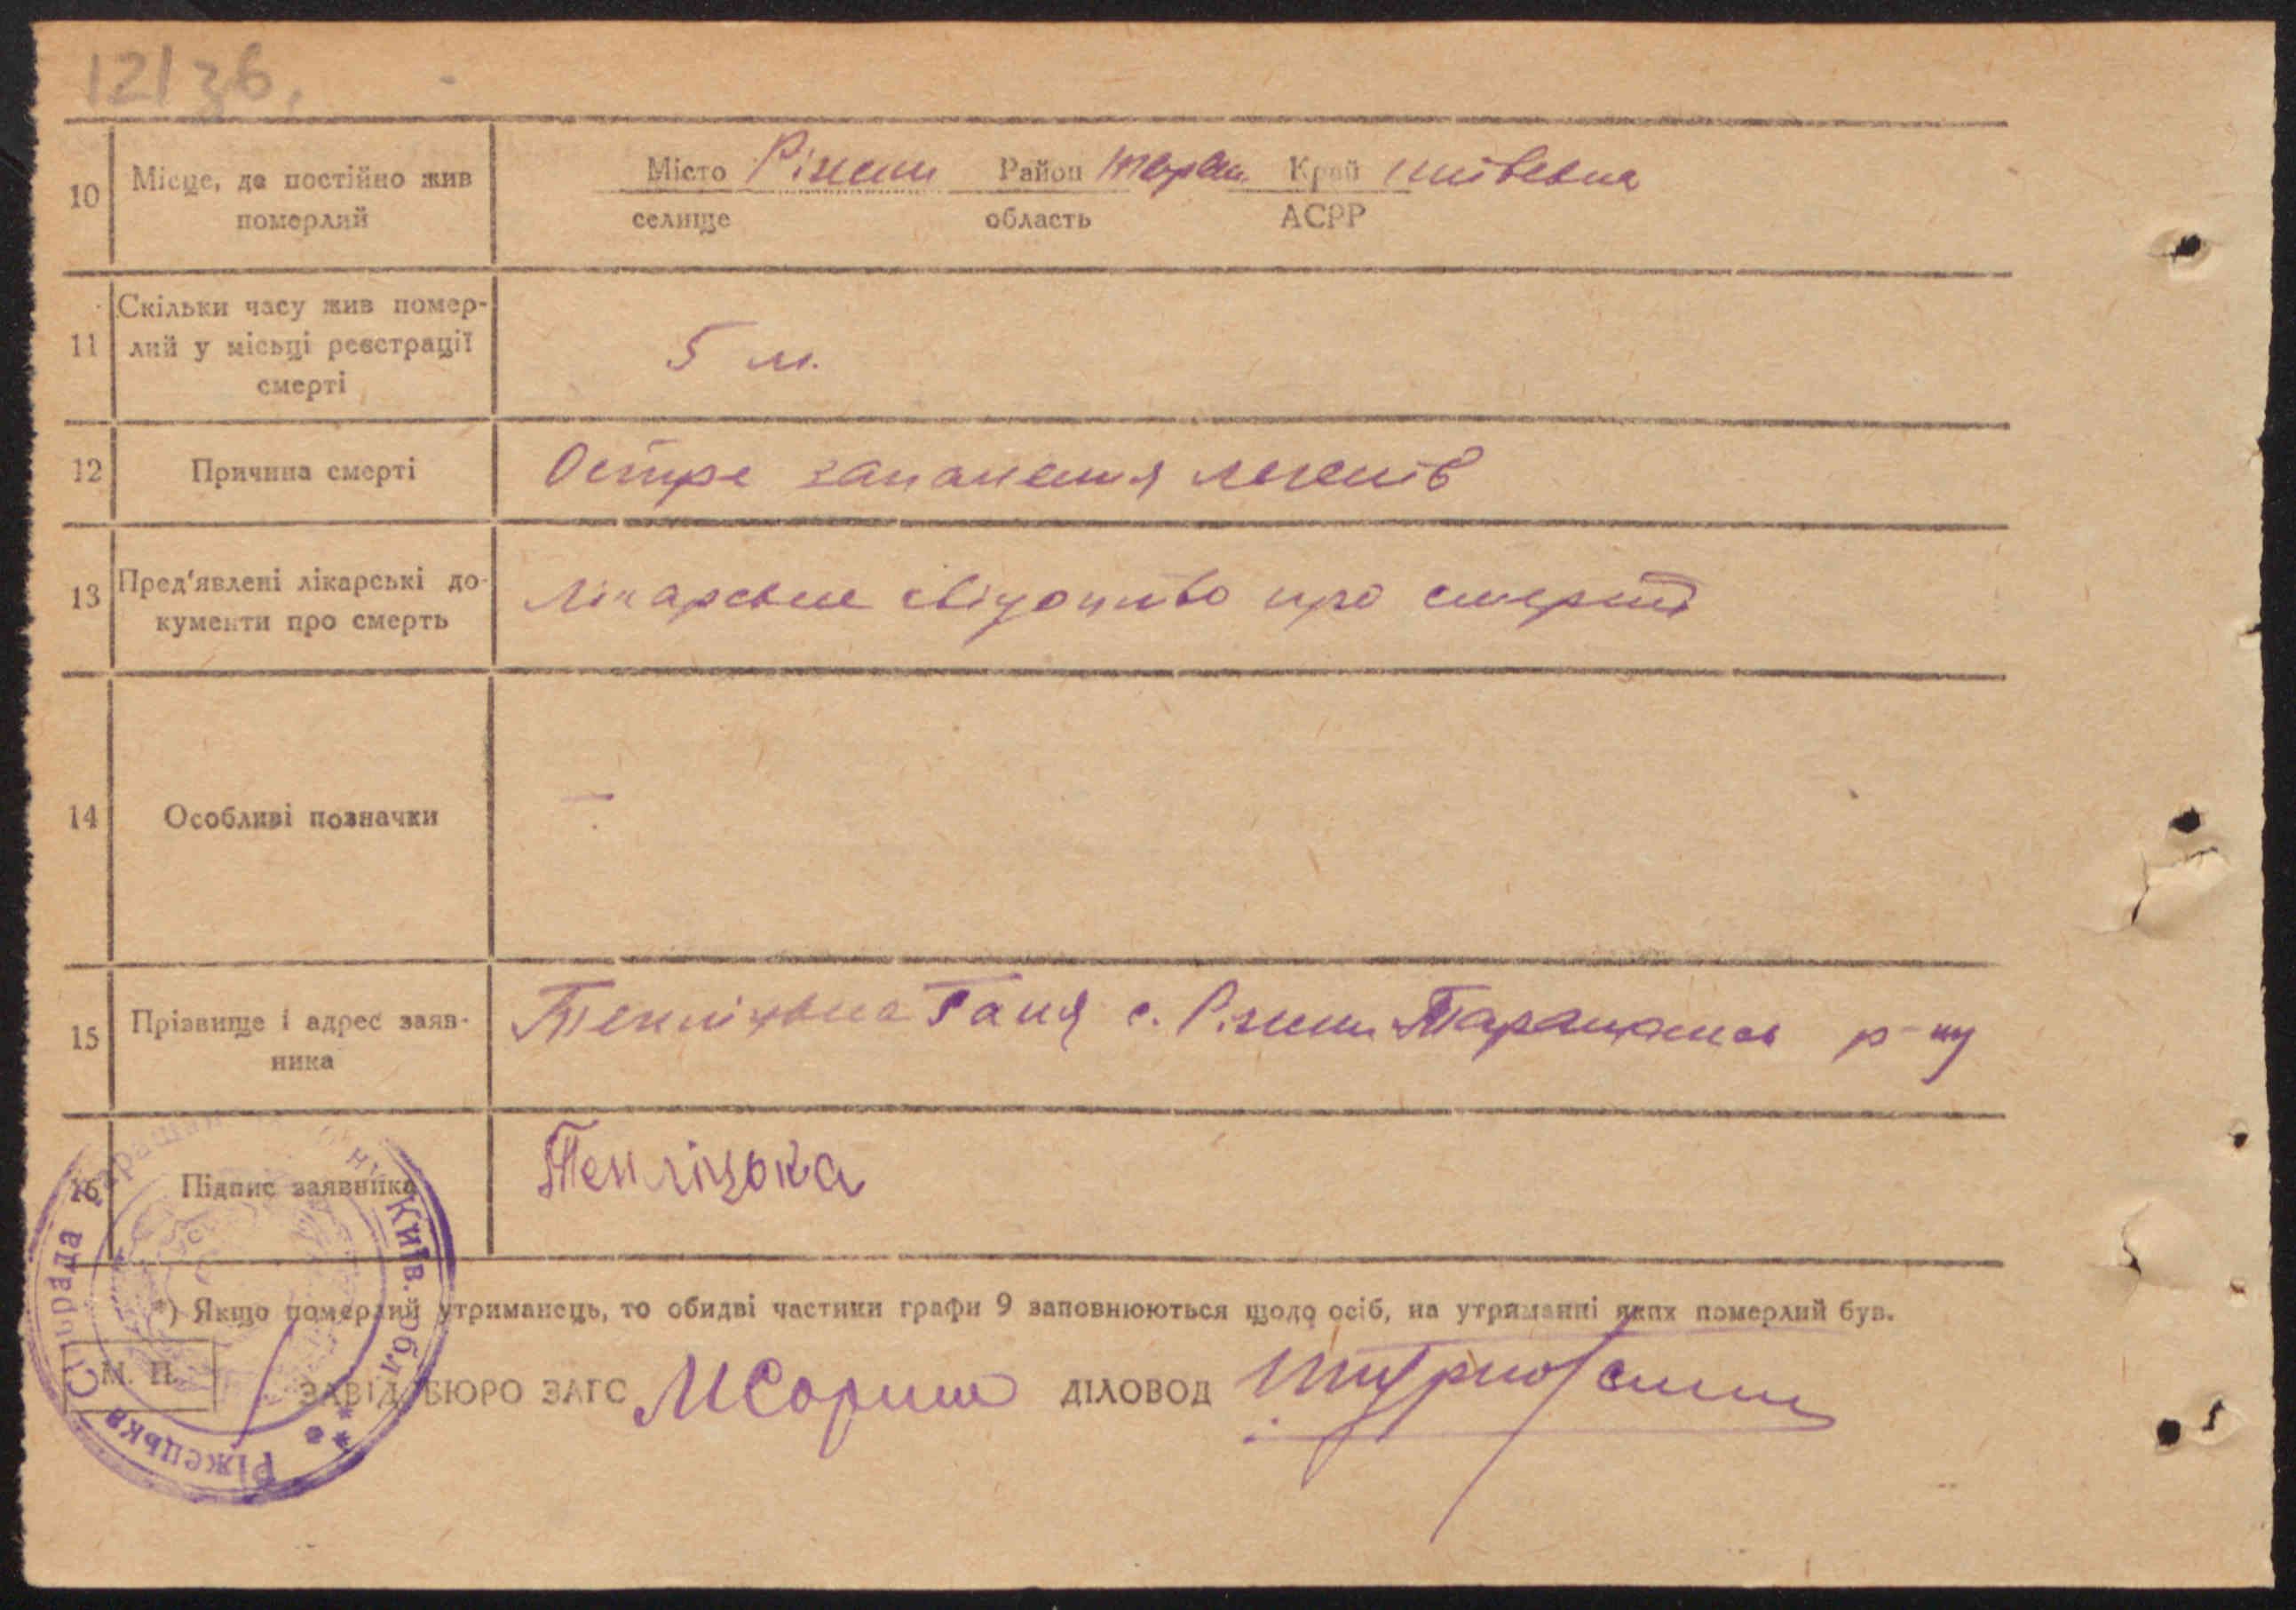 121зв.
10 Місце, де постійно жив Місто Ріжки Район Тараща Край Київська
померлий селище область АСРР
Скільки часу жив помер-
11 лий у місьці реєстрації 5 м.
смерті
12 Причина смерті Остре запалення легенів
13 Пред'явлені лікарські до- Лікарське свідоцтво про смерть
кументи про смерть
14 Особливі позначки —
15 Прізвище і адрес заяв- Тепліцька Ганя с. Ріжки Таращанськ р-ну
ника
16 Підпис заявника Тепліцька
*) Якщо померлий утриманець, то обидві частини графи 9 заповнюються щодо осіб, на утриманні яких померлий був.
М. П. ЗАВІД. БЮРО ЗАГС ДІЛОВОД
Ріжецька Сільрада Київ. Обл.